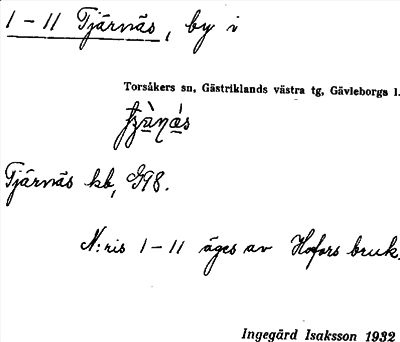 1-11 Tjärnäs, by i
Torsåkers sn, Gästriklands västra tg, Gävleborgs l.
Tjärnäs kb, G98.
N:ris 1-11 äges av Hofors bruk.
Ingegärd Isaksson 1932